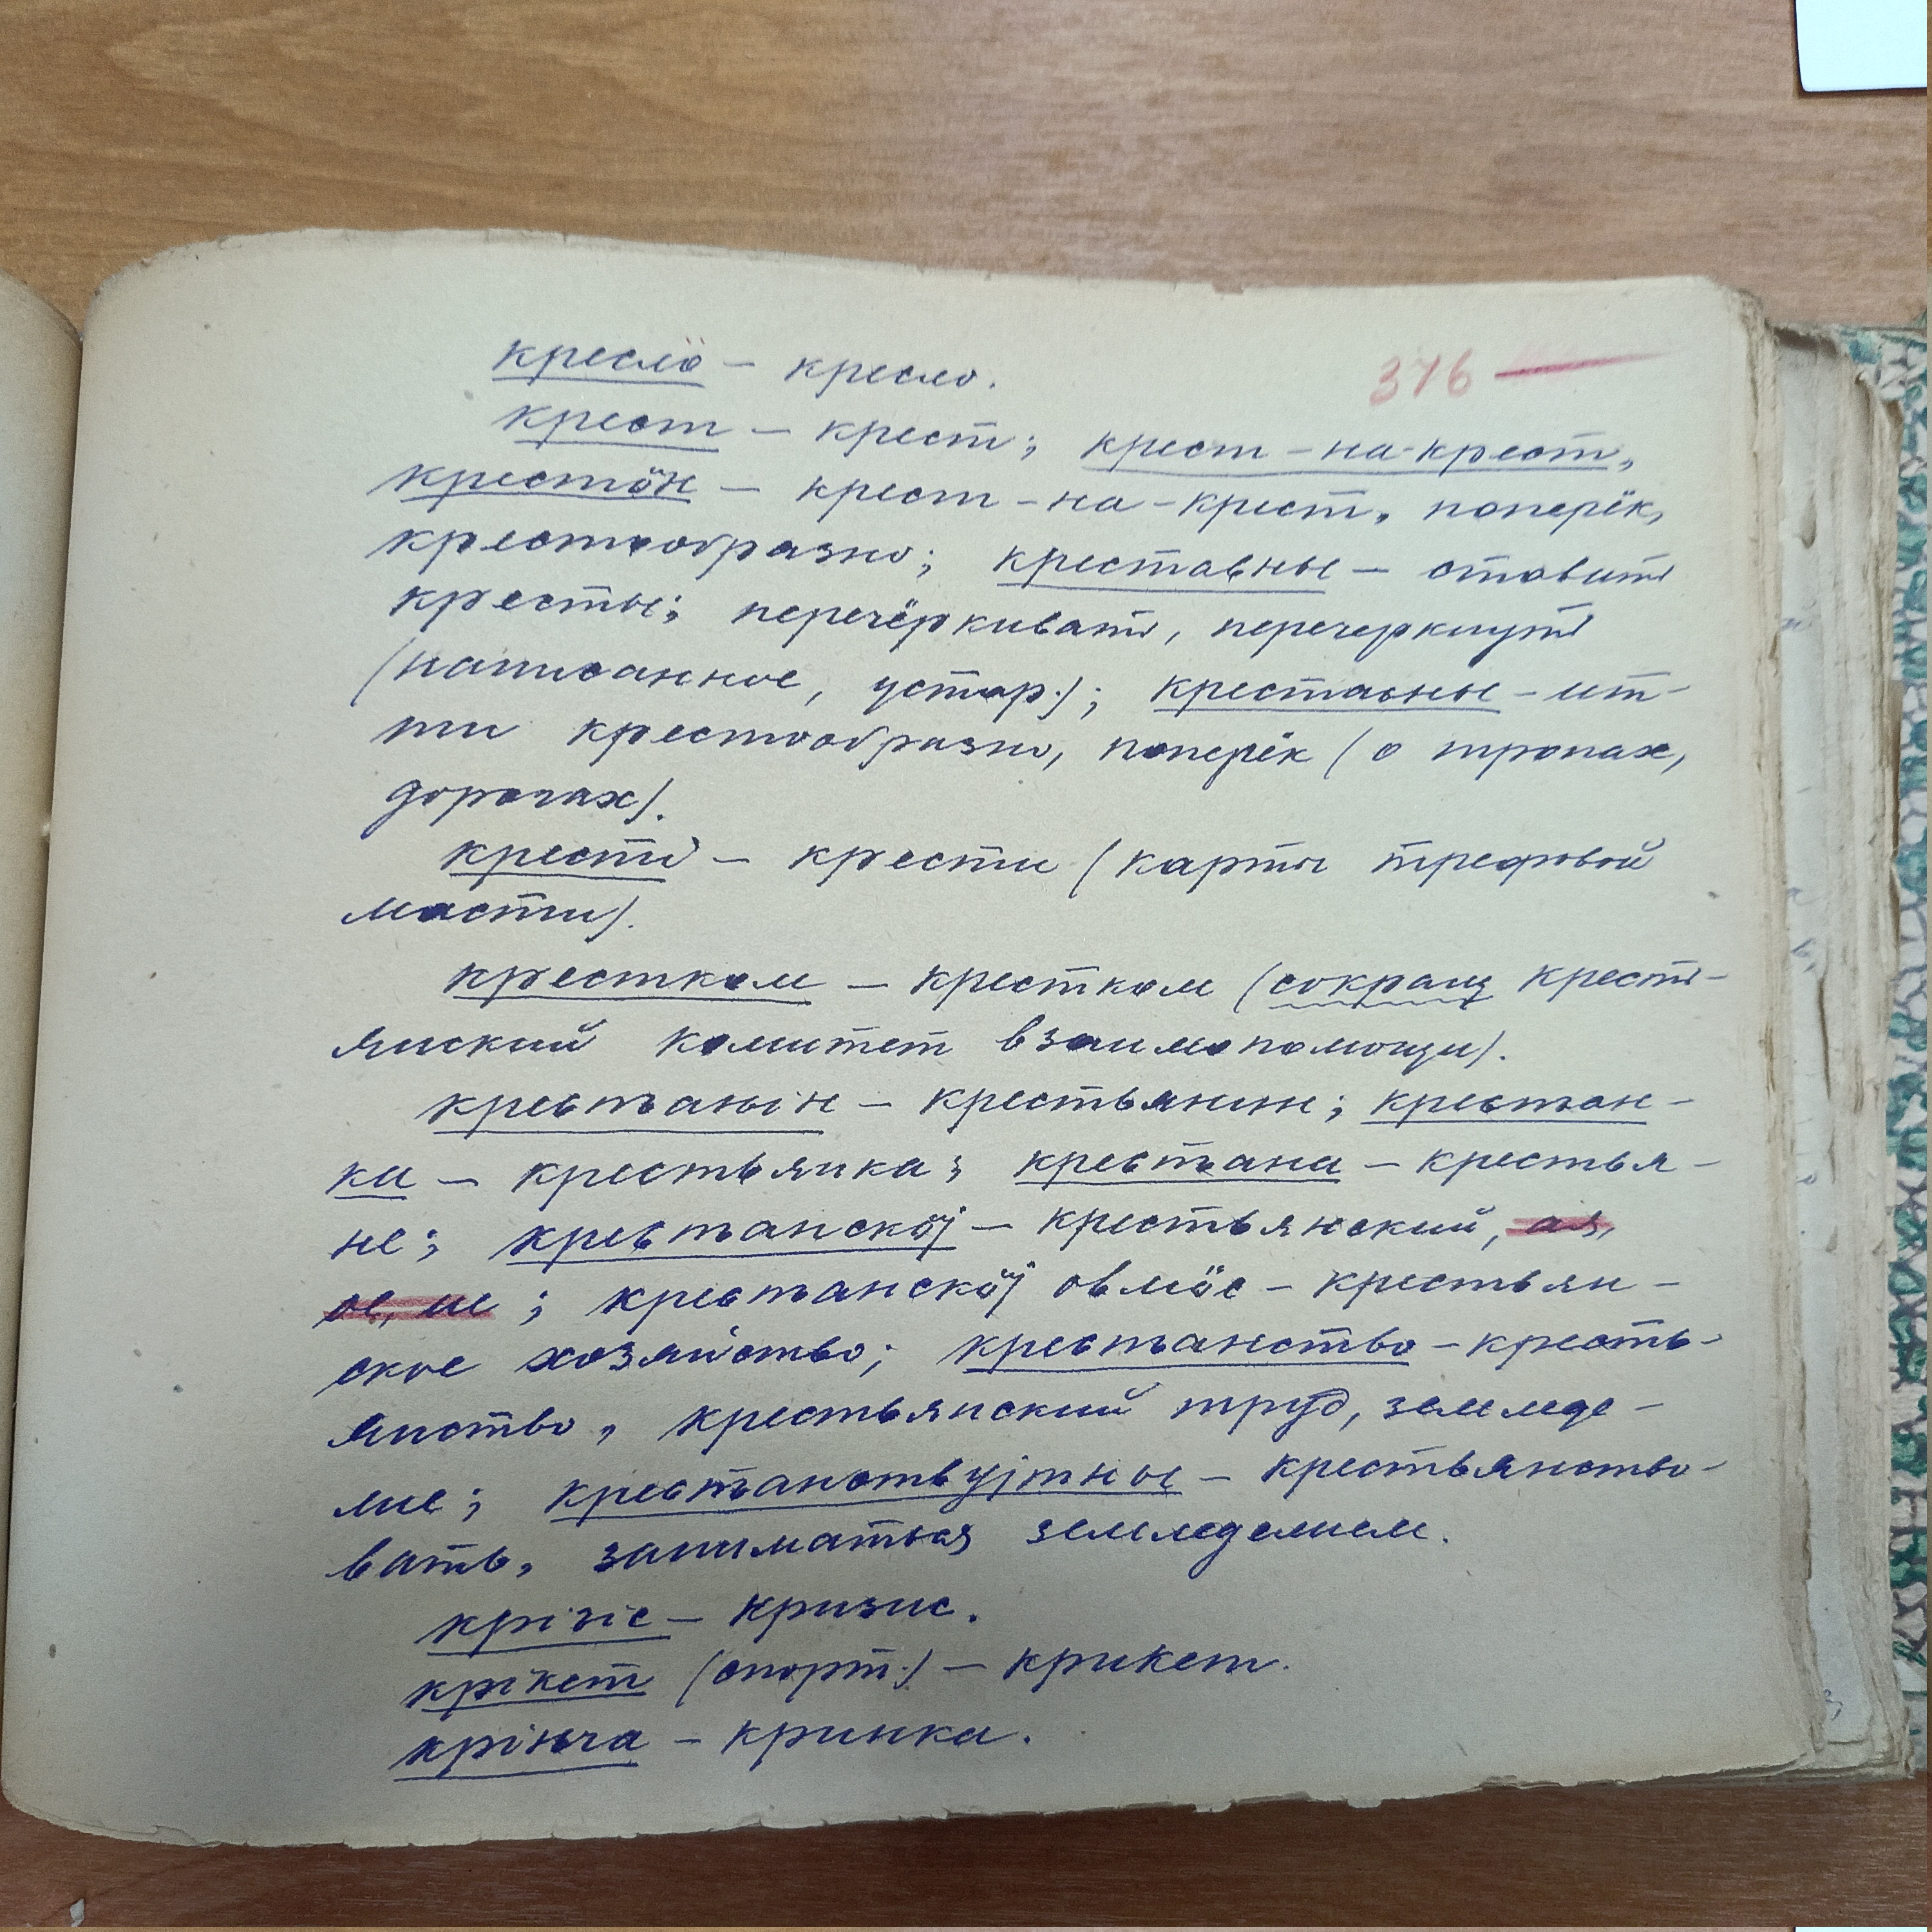 376 —
креслӧ – кресло.
крест – крест; крест-на-крест,
крестӧн – крест-на-крест, поперёк,
крестообразно; креставны – ставить
кресты; перечёркивать, перечеркнуть
(написанное, устар.); креставны – ит-
ти крестообразно, поперёк (о тропах,
дорогах).
крести – крести (карты трефовой
масти).
крестком – крестком (сокращ кресть-
янский комитет взаимопомощи).
кресьтанін – крестьянин; кресьтан-
ка – крестьянка; кресьтана – крестья-
не; кресьтанскӧј – крестьянский, ая,
ое, ие; кресьтанскӧј овмӧс – крестьян-
ское хозяйство; кресьтанство – кресть-
янство, крестьянский труд, земледе-
лие; кресьтанствујтны – крестьянство-
вать, заниматься земледелием.
крізіс – кризис.
крікет (спорт.) – крикет.
крінча – кринка.